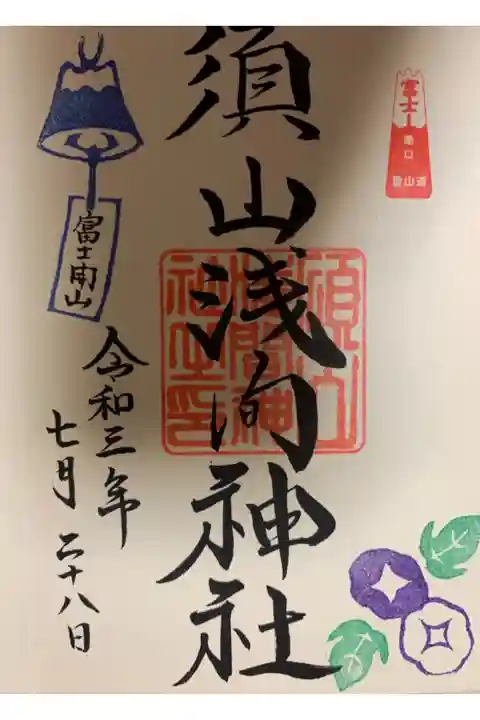 富士山
須山口
登山道
須山浅间神社
須山浅間神社之印
富士開山
令和三年
七月二十八日